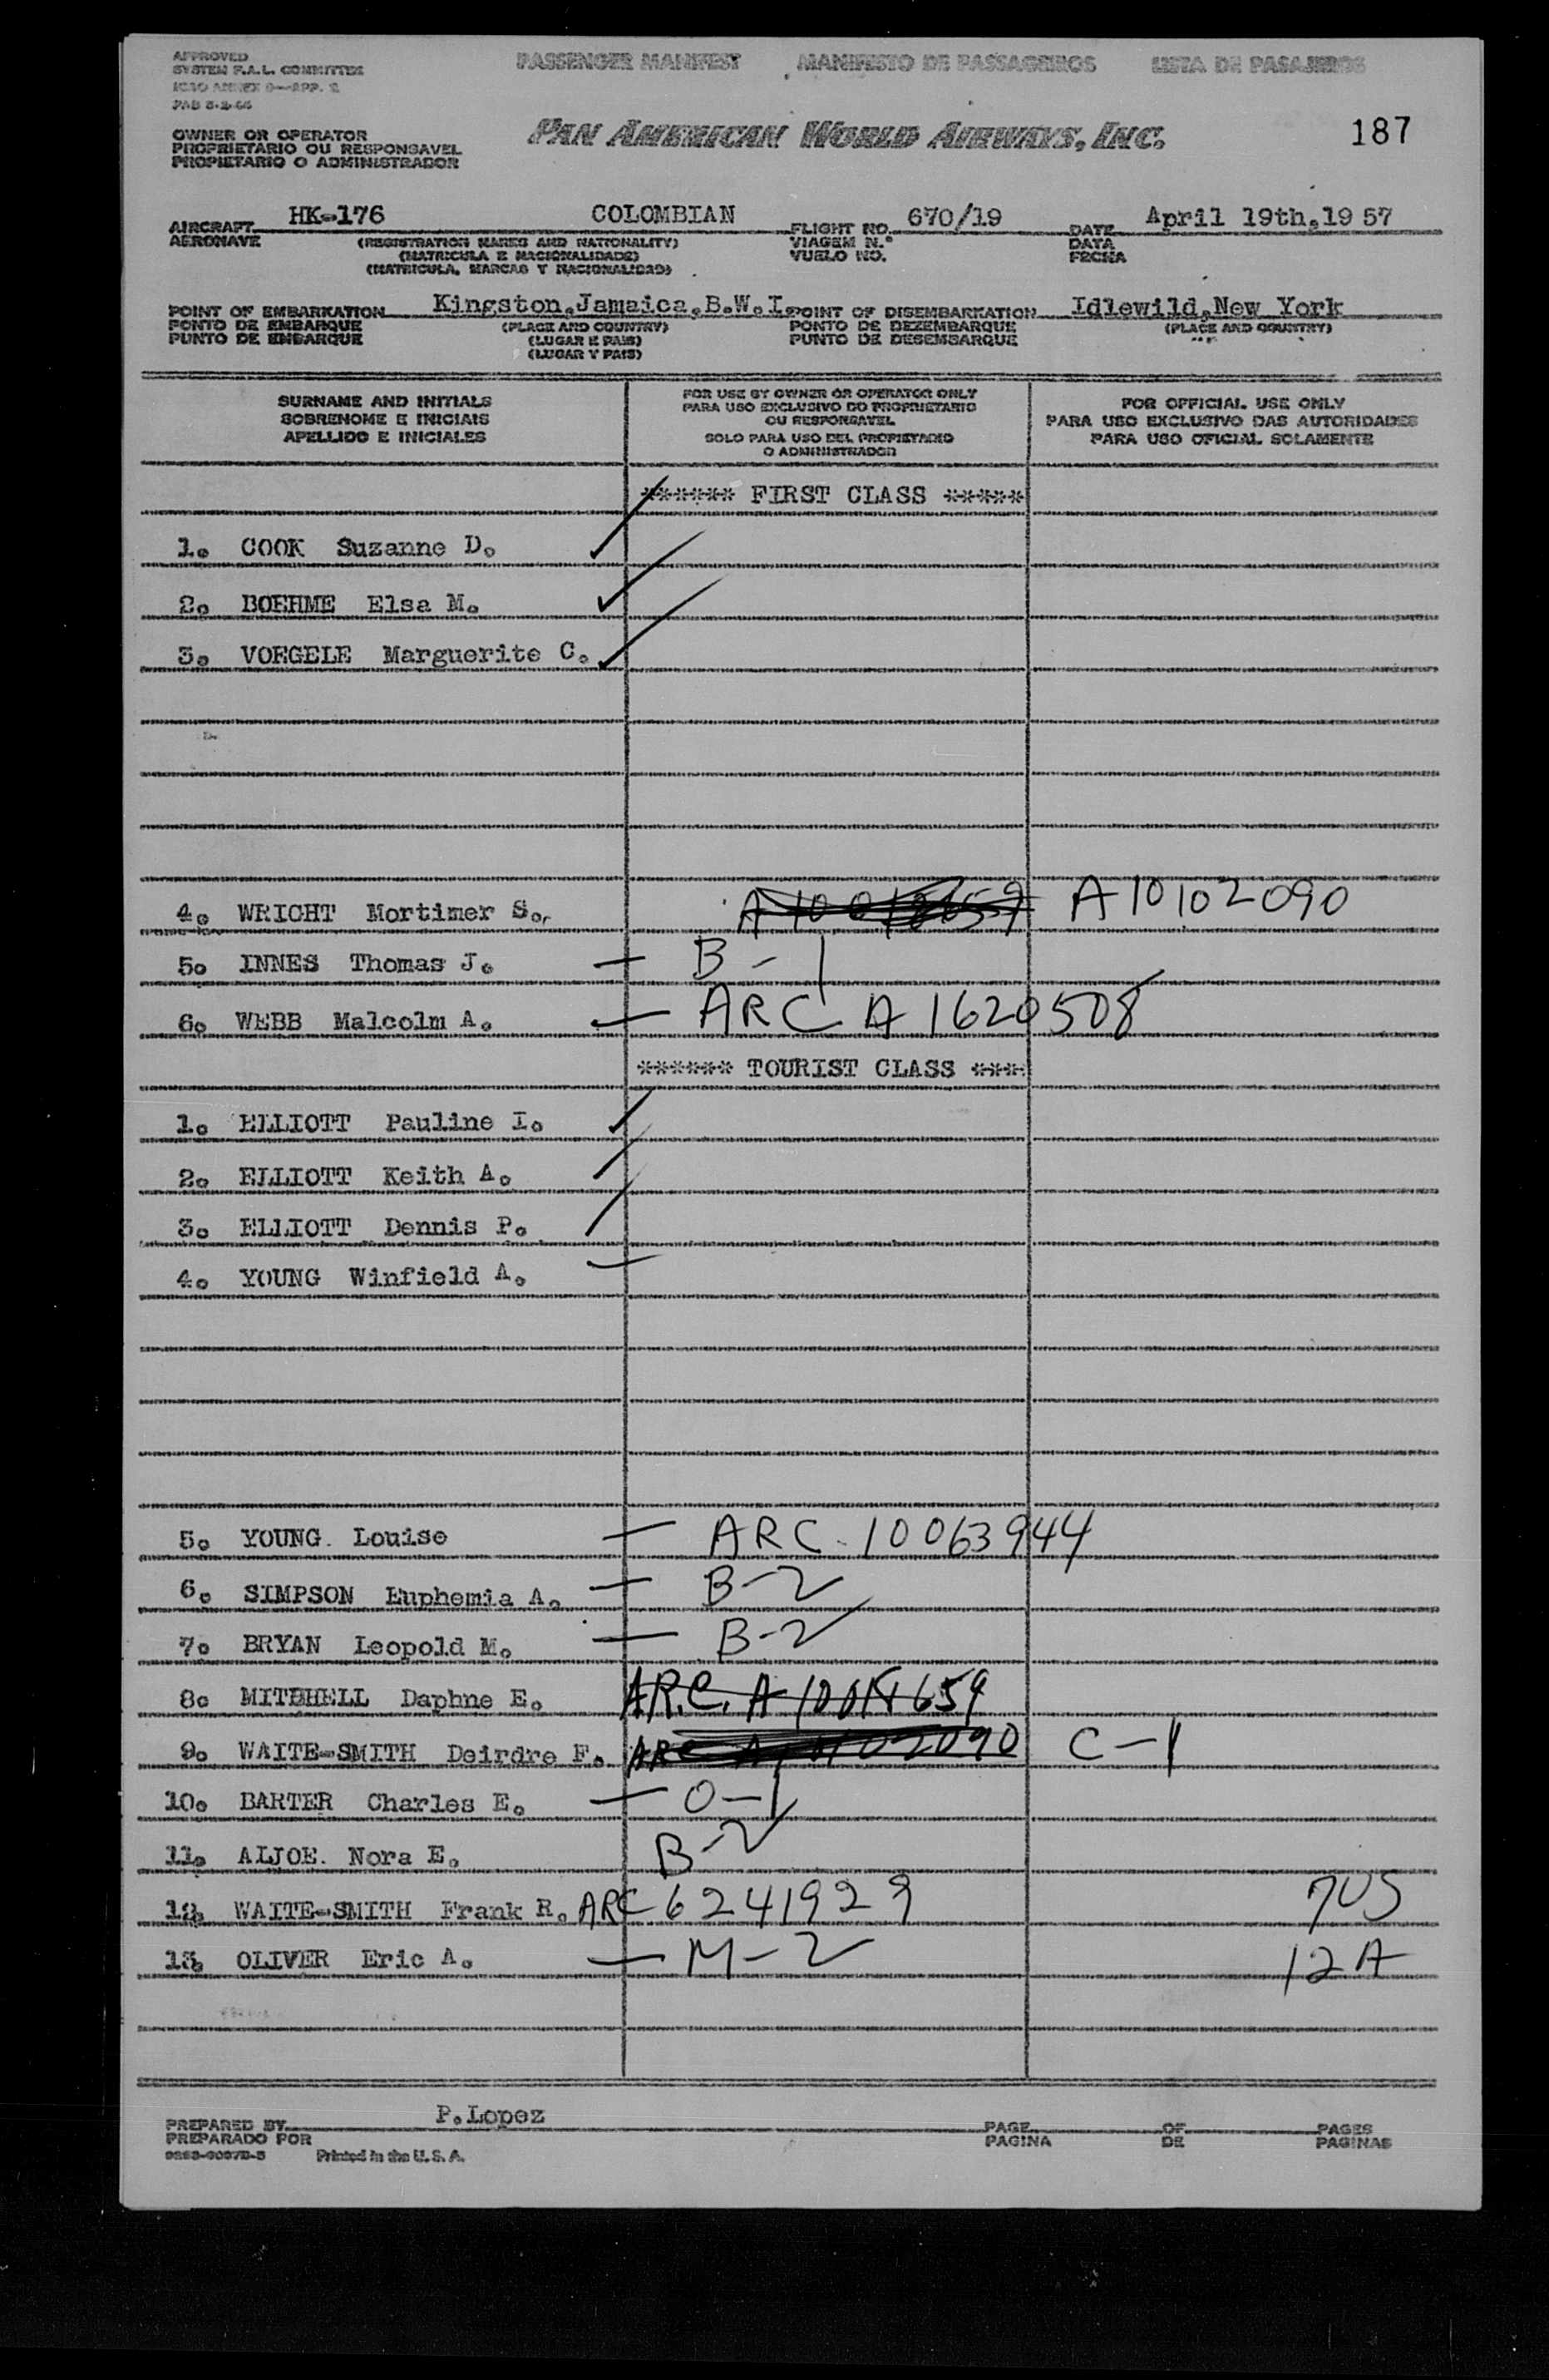 APPROVED
SYSTEM F.A.L. COMMITTEE
ICAO ANNEX 9—APP. 2
PASSENGER MANIFEST MANIFESTO DE PASSAGEIROS LISTA DE PASAJEROS
OWNER OR OPERATOR
PROPRIETARIO OU RESPONSAVEL
PROPIETARIO O ADMINISTRADOR
PAN AMERICAN WORLD AIRWAYS, INC.
187
AIRCRAFT HK-176 COLOMBIAN FLIGHT NO. 670/19 DATE April 19th,19 57
AERONAVE (REGISTRATION MARKS AND NATIONALITY) VIAGEM N.° DATA
(MATRICULA E NACIONALIDADE) VUELO NO. FECHA
(MATRICULA, MARCAS Y NACIONALIDAD)
POINT OF EMBARKATION Kingston,Jamaica,B.W.I. POINT OF DISEMBARKATION Idlewild,New York
PONTO DE EMBARQUE (PLACE AND COUNTRY) PONTO DE DEZEMBARQUE (PLACE AND COUNTRY)
PUNTO DE EMBARQUE (LUGAR E PAIS) PUNTO DE DESEMBARQUE
(LUGAR Y PAIS)
SURNAME AND INITIALS
SOBRENOME E INICIAIS
APELLIDO E INICIALES
FOR USE BY OWNER OR OPERATOR ONLY
PARA USO EXCLUSIVO DO PROPRIETARIO
OU RESPONSAVEL
SOLO PARA USO DEL PROPIETARIO
O ADMINISTRADOR
FOR OFFICIAL USE ONLY
PARA USO EXCLUSIVO DAS AUTORIDADES
PARA USO OFICIAL SOLAMENTE
****** FIRST CLASS *****
1. COOK Suzanne D.
2. BOEHME Elsa M.
3. VOEGELE Marguerite C.
4. WRIGHT Mortimer S. A10102090
5. INNES Thomas J. — B-1
6. WEBB Malcolm A. — ARC A 1620508
****** TOURIST CLASS ***
1. ELLIOTT Pauline I.
2. ELLIOTT Keith A.
3. ELLIOTT Dennis P.
4. YOUNG Winfield A.
5. YOUNG. Louise — ARC. 10063944
6. SIMPSON Euphemia A. — B-2
7. BRYAN Leopold M. — B-2
8. MITCHELL Daphne E. A.R.C. A
9. WAITE-SMITH Deirdre F. ARC A10102090 C-1
10. BARTER Charles E. — O-1
11. ALJOE. Nora E. B-2
12. WAITE-SMITH Frank R. ARC 6241929 7US
13. OLIVER Eric A. — M-2 12A
PREPARED BY P.Lopez PAGE OF PAGES
PREPARADO POR PAGINA DE PAGINAS
Printed in the U.S.A.